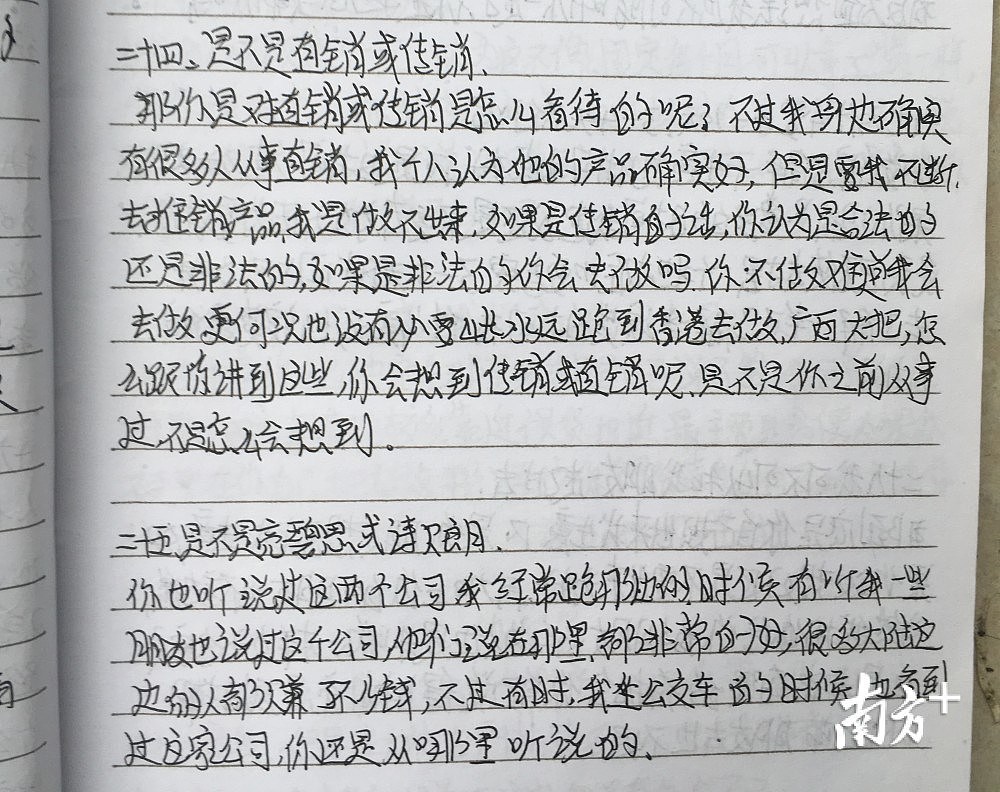 二十四、是不是直销或传销.
那你是对直销或传销是怎么看待的呢？不过我身边确实
有很多人从事直销，我个人认为他的产品确实好，但是要我不断.
去推销产品，我是做不出来，如果是传销的话，你认为是合法的
还是非法的，如果是非法的你会去做吗.你不做难道我会
去做更何况也没有必要山长水远跑到香港去做，广西大把，怎
么跟你讲到这些，你会想到传销或直销呢.是不是你之前从事
过，不是怎么会想到。
二十五.是不是克碧思或诗贝朗.
你也听说过这两个公司，我经常跑那边的时候有听我一些
朋友也说过这个公司，他们说在那里都非常的好，很多大陆这
边的人都赚了不少钱，不过有时，我坐公交车的时候也看到
过这家公司，你还是从哪里听说的.
南方+